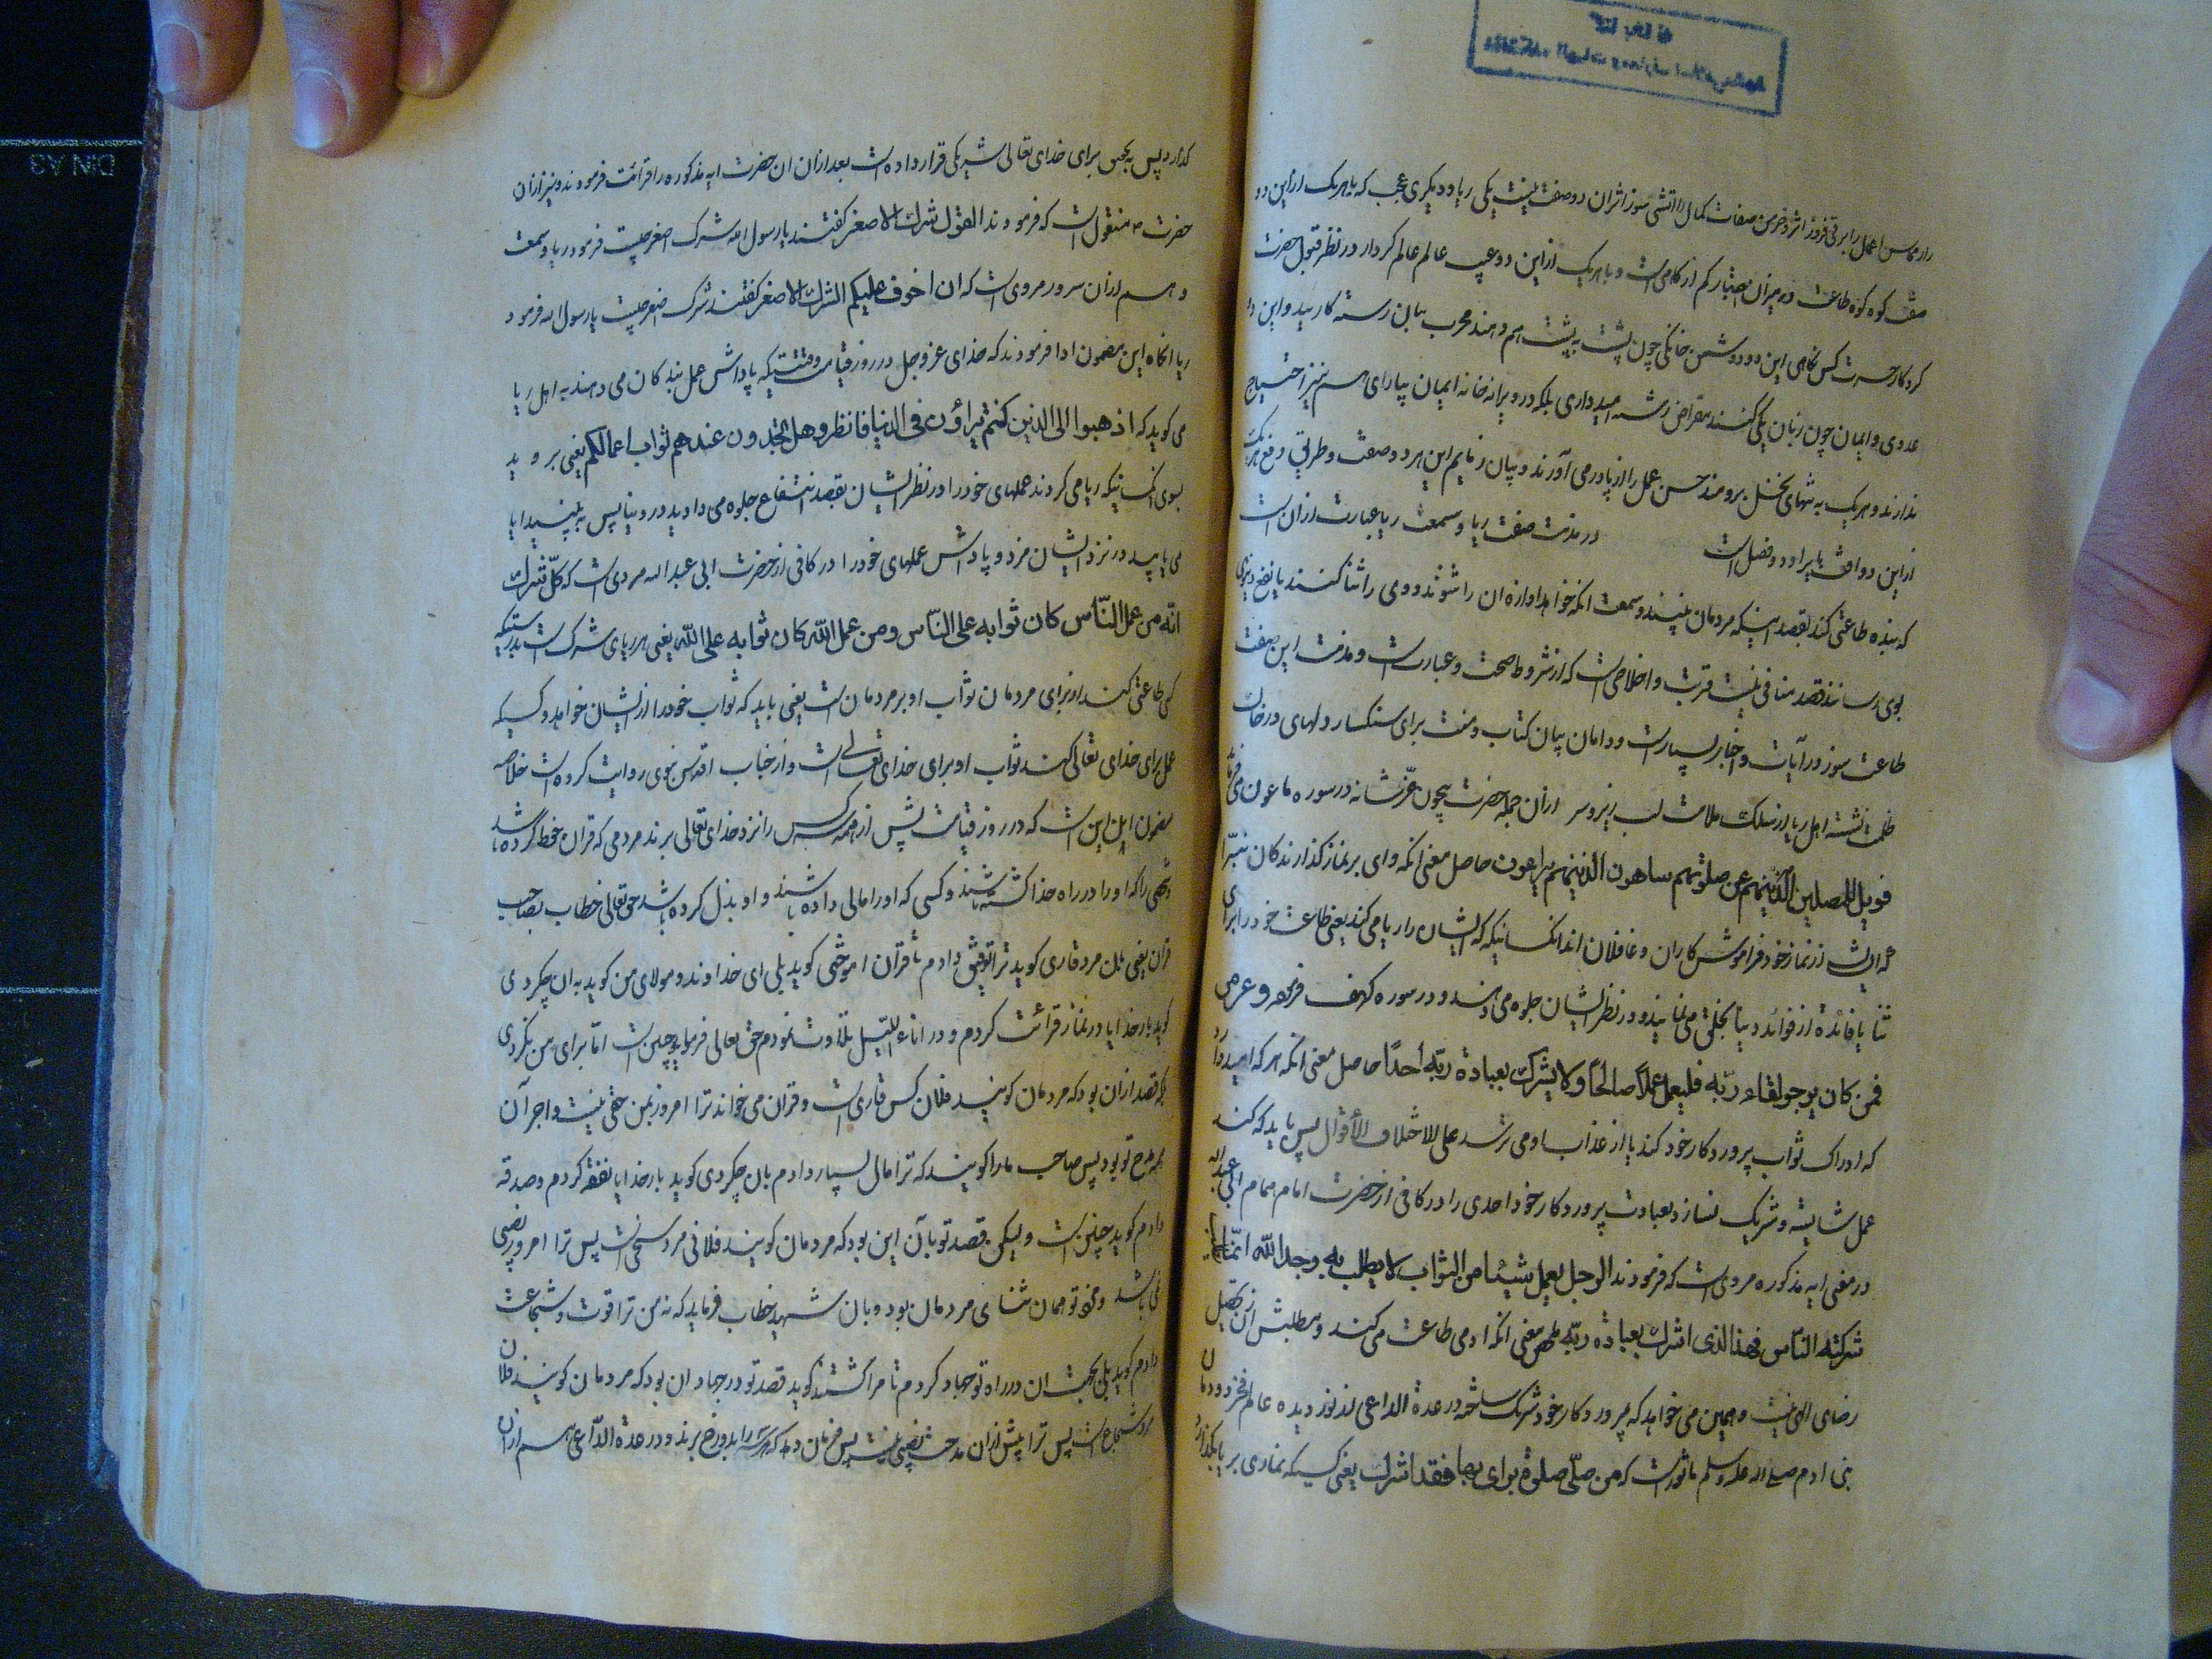 صف کوه کوه طاعت در میزان اعتبار کم از کاهی است و با هریک ازاین دو عیب عالم عالم کردار در نظر قبول حضرت
ندارند و هریک به تنهای نخل برومند حسن عمل را از پا در می آورند و بیان نمایم این هر دو صفت و طریق دفع هریک
ازاین دو افت با ایراد دو فصل است در مذمت صفت ریا و سمعت ریا عبارت ازان است
که بنده طاعتی کند بقصد اینکه مردمان بینند و سمعت انکه خواهد اوازه ان را شنوند و وی را ثنا کنند یا نفع دنیوی
بوی رسانند و قصد منافی نیت قربت و اخلاص است که از شروط صحت و عبادت است و مذمت این صفت
طاعت سوز در آیات و اخبار بسیار است و دامان بیان کتاب و سنت برای سنکسار دلهای
ازان جمله حضرت بیچون عز شانه در سوره ماعون می فرماید
فویل للمصلین الذینهم عن صلوتهم ساهون الذینهم یراءون حاصل معنی انکه وای بر نماز کذارندکان
که ایشان از نماز خود فراموش کاران و غافلان اند انکسانیکه که ایشان را ریا می کنند یعنی طاعت خود را برای
ثنا یا فائده از فوائد دنیا بخلق می نمایند و در نظر ایشان جلوه می دهند و در سوره کهف فرموده و عز من
فمن کان یرجو لقاء ربّه فلیعمل عملاً صالحاً ولا یشرک بعبادة ربّه أحداً حاصل معنی انکه هر که امید دارد
که ادراک ثواب پروردکار خود کند یا از عذاب او می ترسد علی الاختلاف الأقوال پس باید که کند
عمل شایسته و شریک نسازد بعبادت پروردکار خود احدی را در کافی از حضرت امام همام ابی عبدالله
در معنی ایه مذکوره مروی است که فرمودند الرجل یعمل شیئا من الثواب لا یطلب به وجه الله انّما
شرکته النّاس فهذا الذی اشرک بعبادة ربّه معنی انکه ادمی طاعت می کند و مطلبش ازان تحصیل
رضای الهی نیست و همین می خواهد که پروردکار خود شریک ساخته در عدة الداعی از نور دیده عالم فخر دودمان
بنی ادم صلی الله علیه وسلم ماثور است که من صلّی صلوة یرای بها فقد اشرک یعنی کسیکه نمازی بریا بکذارد
کذارد پس به تحقیق برای خدای تعالی شریکی قرار داده است بعد ازان ان حضرت ایه مذکوره را قرائت فرمودند و نیز ازان
حضرت منقول است که فرمودند اتقوا الشرک الاصغر کفتند یا رسول الله شرک اصغر چیست فرمود ریا و سمعت
و هم ازان سرور مروی است که ان اخوف علیکم الشرک الاصغر کفتند شرک اصغر چیست یا رسول الله فرمود
ریا انکاه این مضمون ادا فرمودند که خدای عز و جل در روز قیامت وقتیکه پاداش عمل بندکان می دهند به اهل ریا
می کوید که اذهبوا الی الذین کنتم تراؤن فی الدنیا فانظروا هل تجدون عندهم ثواب اعمالکم یعنی بروید
بسوی انکسانیکه ریا می کردند عملهای خود را در نظر ایشان بقصد انتفاع جلوه می دادید در دنیا پس ببینید ایا
می یابید در نزد ایشان مزد و پاداش عملهای خود را در کافی از حضرت ابی عبدالله مروی است که کلّ شرک
انّه من عمل للنّاس کان ثوابه علی النّاس و من عمل لله کان ثوابه علی الله یعنی هر ریای شرک است بدرستیکه
کی طاعتی کند از برای مردمان ثواب او بر مردمان است یعنی باید که ثواب خود را از ایشان خواهد و کسیکه
عمل برای خدای تعالی کند ثواب او برای خدای تعالی است و از جناب اقدس نبوی روایت کرده است خلاصه
مضمون این است که در روز قیامت پیش از همه کس را نزد خدای تعالی برند مردمی که قران حفظ کرده باشد
و شخصی را که او را در راه خدا کشته باشند و کسی که اورا مالی داده باشند و او بذل کرده باشد حق تعالی خطاب بصاحب
قران یعنی بان مرد قاری کوید ترا توفیق دادم تا قران اموختی کوید بلی ای خداوند و مولای من کوید به ان چکردی
کوید بار خدایا در نماز قرائت کردم و در اناء اللیل تلاوت نمودم حق تعالی فرماید چنین است امّا برای من نکردی
بلکه قصد ازان بود که مردمان کویند فلان کس قاری است و قران می خواند ترا امروز بمن حقی نیست و اجر آن
تو بود پس صاحب مال را کویند که ترا مال بسیار دادم بان چکردی کوید بار خدایا نفقه کردم و صدقه
دادم کوید چنین است ولیکن قصد تو بآن این بود که مردمان کویند فلانی مرد سخی است پس ترا امروز نصیبی
نمی باشد و مزد تو همان ثنای مردمان بود و بان شهید خطاب فرماید که نه من ترا قوت و شجاعت
دادم کوید بلی ان در راه تو جهاد کردم تا مرا کشتند کوید قصد تو در جهاد ان بود که مردمان کویند فلان
مرد شجاع است پس ترا بیش ازان مدحت نصیبی نیست پس فرمان دهد که هر سه را بدوزخ برند و در عدة الدّاعی هم ازان